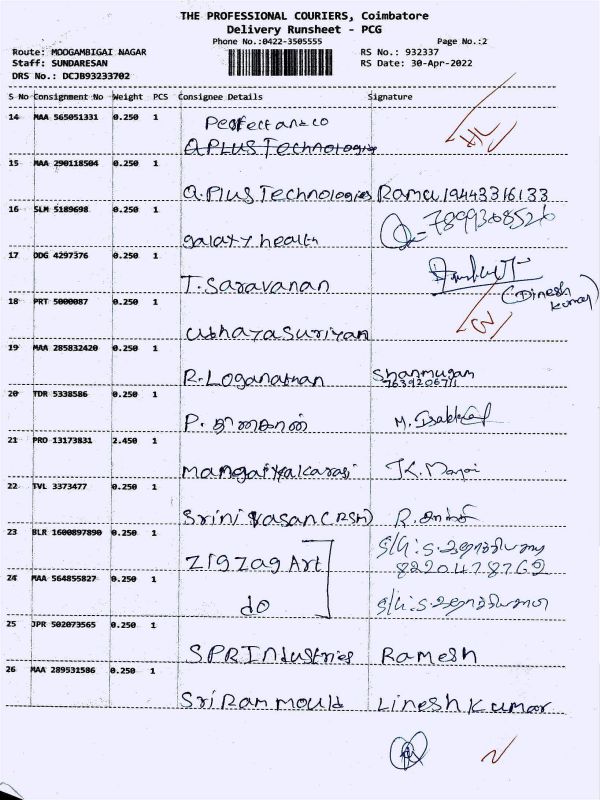 THE PROFESSIONAL COURIERS, Coimbatore
Delivery Runsheet - PCG
Phone No.:0422-3505555 Page No.:2
Route: MOOGAMBIGAI NAGAR RS No.: 932337
Staff: SUNDARESAN RS Date: 30-Apr-2022
DRS No.: DCJB93233702
S No Consignment No Weight PCS Consignee Details Signature
14 MAA 565051331 0.250 1 Perfect and co
QPLUS Technologies
15 MAA 290118504 0.250 1
Q.Plus Technologies Ramu 19443316133
16 SLM 5189698 0.250 1 7899308526
galaxy health
17 ODG 4297376 0.250 1
T. Saravanan (Dinesh
kumar)
18 PRT 5000087 0.250 1
uthayasuriyan
19 MAA 285832420 0.250 1
R. Loganathan Shanmugam
20 TDR 5338586 0.250 1
P. M.
21 PRO 13173831 2.450 1
Mangaiyalkarasi
22 TVL 3373477 0.250 1
Srinivasan (RSH) R.
23 BLR 1600897890 0.250 1
ZIgZag Art 8220478762
24 MAA 564855827 0.250 1
do
25 JPR 502073565 0.250 1
SPR Industries Ramesh
26 MAA 289531586 0.250 1
Sri Ram mould Linesh Kumar